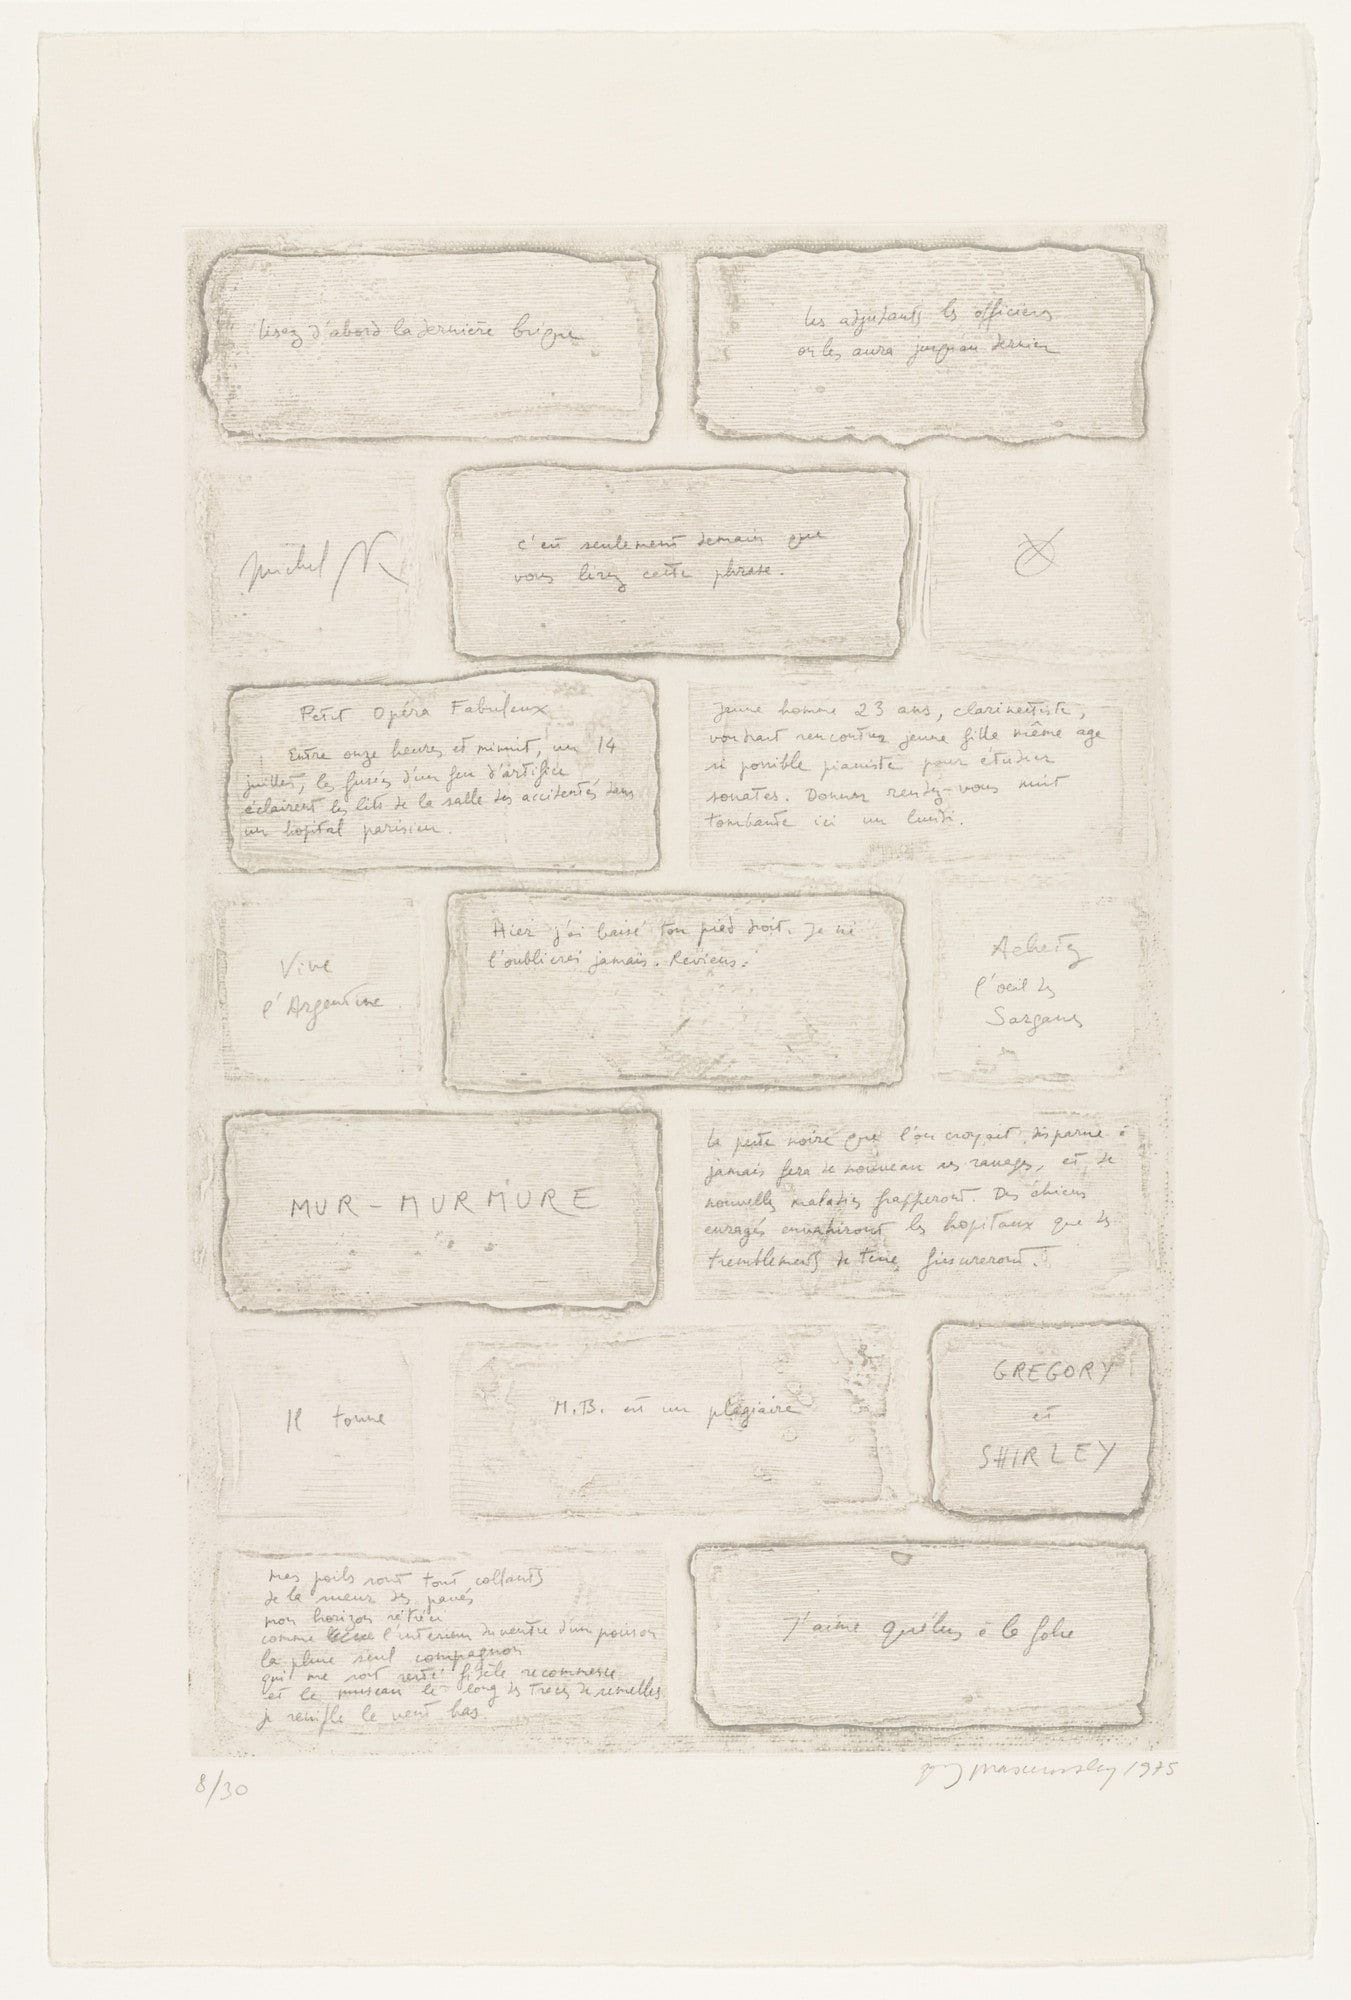 lisez d'abord la dernière brique
les adjudants les officiers
on les aura jusqu'au dernier
Michel
c'est seulement demain que
vous lirez cette phrase.
Petit Opéra Fabuleux
Entre onze heures et minuit, un 14
juillet, les fusées d'un feu d'artifice
éclairent les lits de la salle des accidentés dans
un hôpital parisien.
Jeune homme 23 ans, clarinettiste,
voudrait rencontrer jeune fille même age
si possible pianiste pour étudier
sonates. Donner rendez-vous nuit
tombante ici un lundi.
Vive
l'Argentine
Hier j'ai baisé ton pied droit. Je ne
l'oublierai jamais. Reviens.
Achetez
l'oeil des
Sargasses
MUR-MURMURE
la peste noire que l'on croyait disparue à
jamais fera de nouveau ses ravages, et de
nouvelles maladies frapperont. Des chiens
enragés envahiront les hopitaux que des
tremblements de terre fissureront.
Il tonne
M.B. est un plagiaire
GREGORY
et
SHIRLEY
mes poils sont tout collants
de la sueur des pavés
mon horizon rétréci
comme l'intérieur du ventre d'un poisson
la pluie seul compagnon
qui me soit resté fidèle recommence
et le museau le long des traces de semelles
je renifle le vent bas
J'aime à la folie
8/30
1975